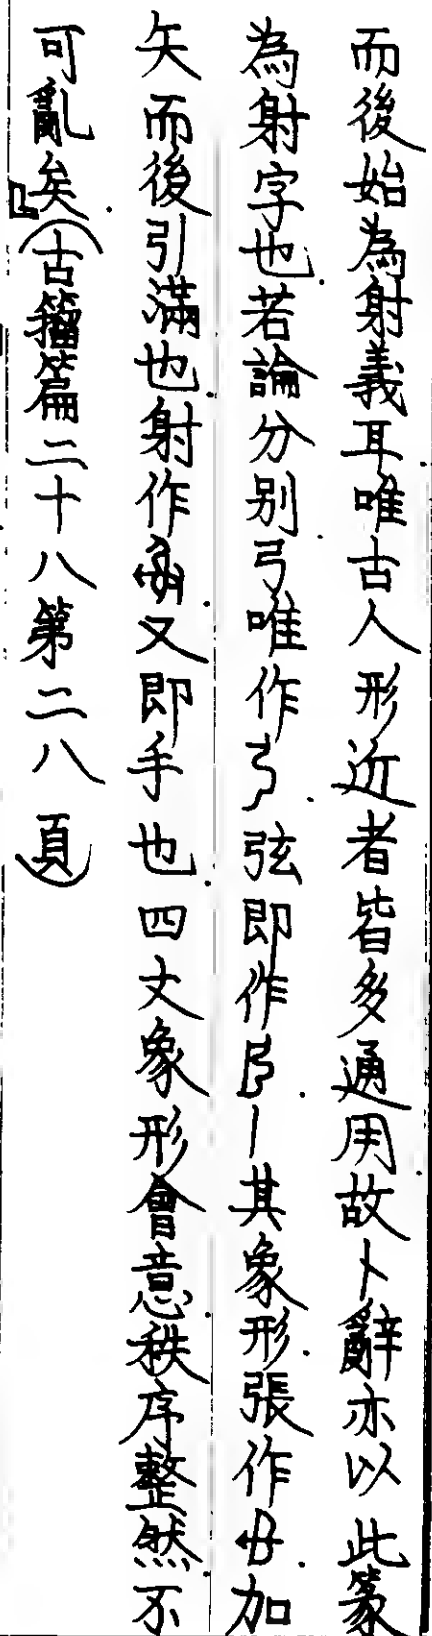 而後始為射義耳唯古人形近者皆多通用故卜辭亦以此篆
為射字也若論分別弓唯作弦即作丨其象形張作加
矢而後引滿也射作又即手也四文象形會意秩序整然不
可亂矣」(古籀篇二十八第二八頁)